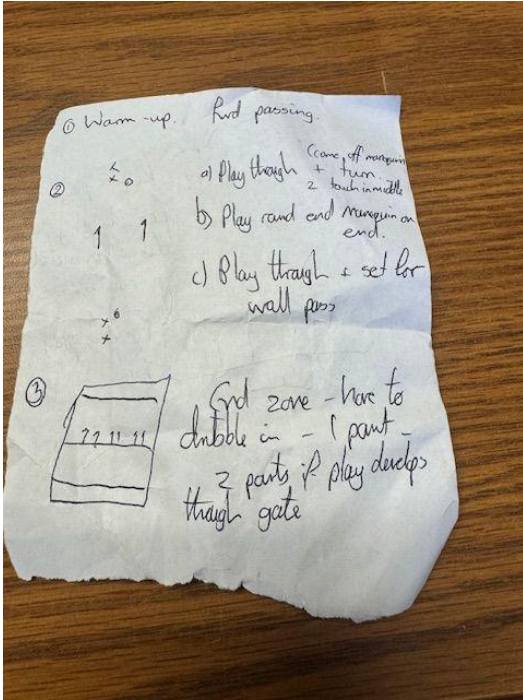 ① Warm-up. Fwd passing.
②
a) Play though + turn
(come off manequin
2 touch in middle
b) Play rand end manequin on
end.
c) Play through + set for
wall pass
③
End zone - have to
dribble in - 1 point -
2 points if play develops
though gate